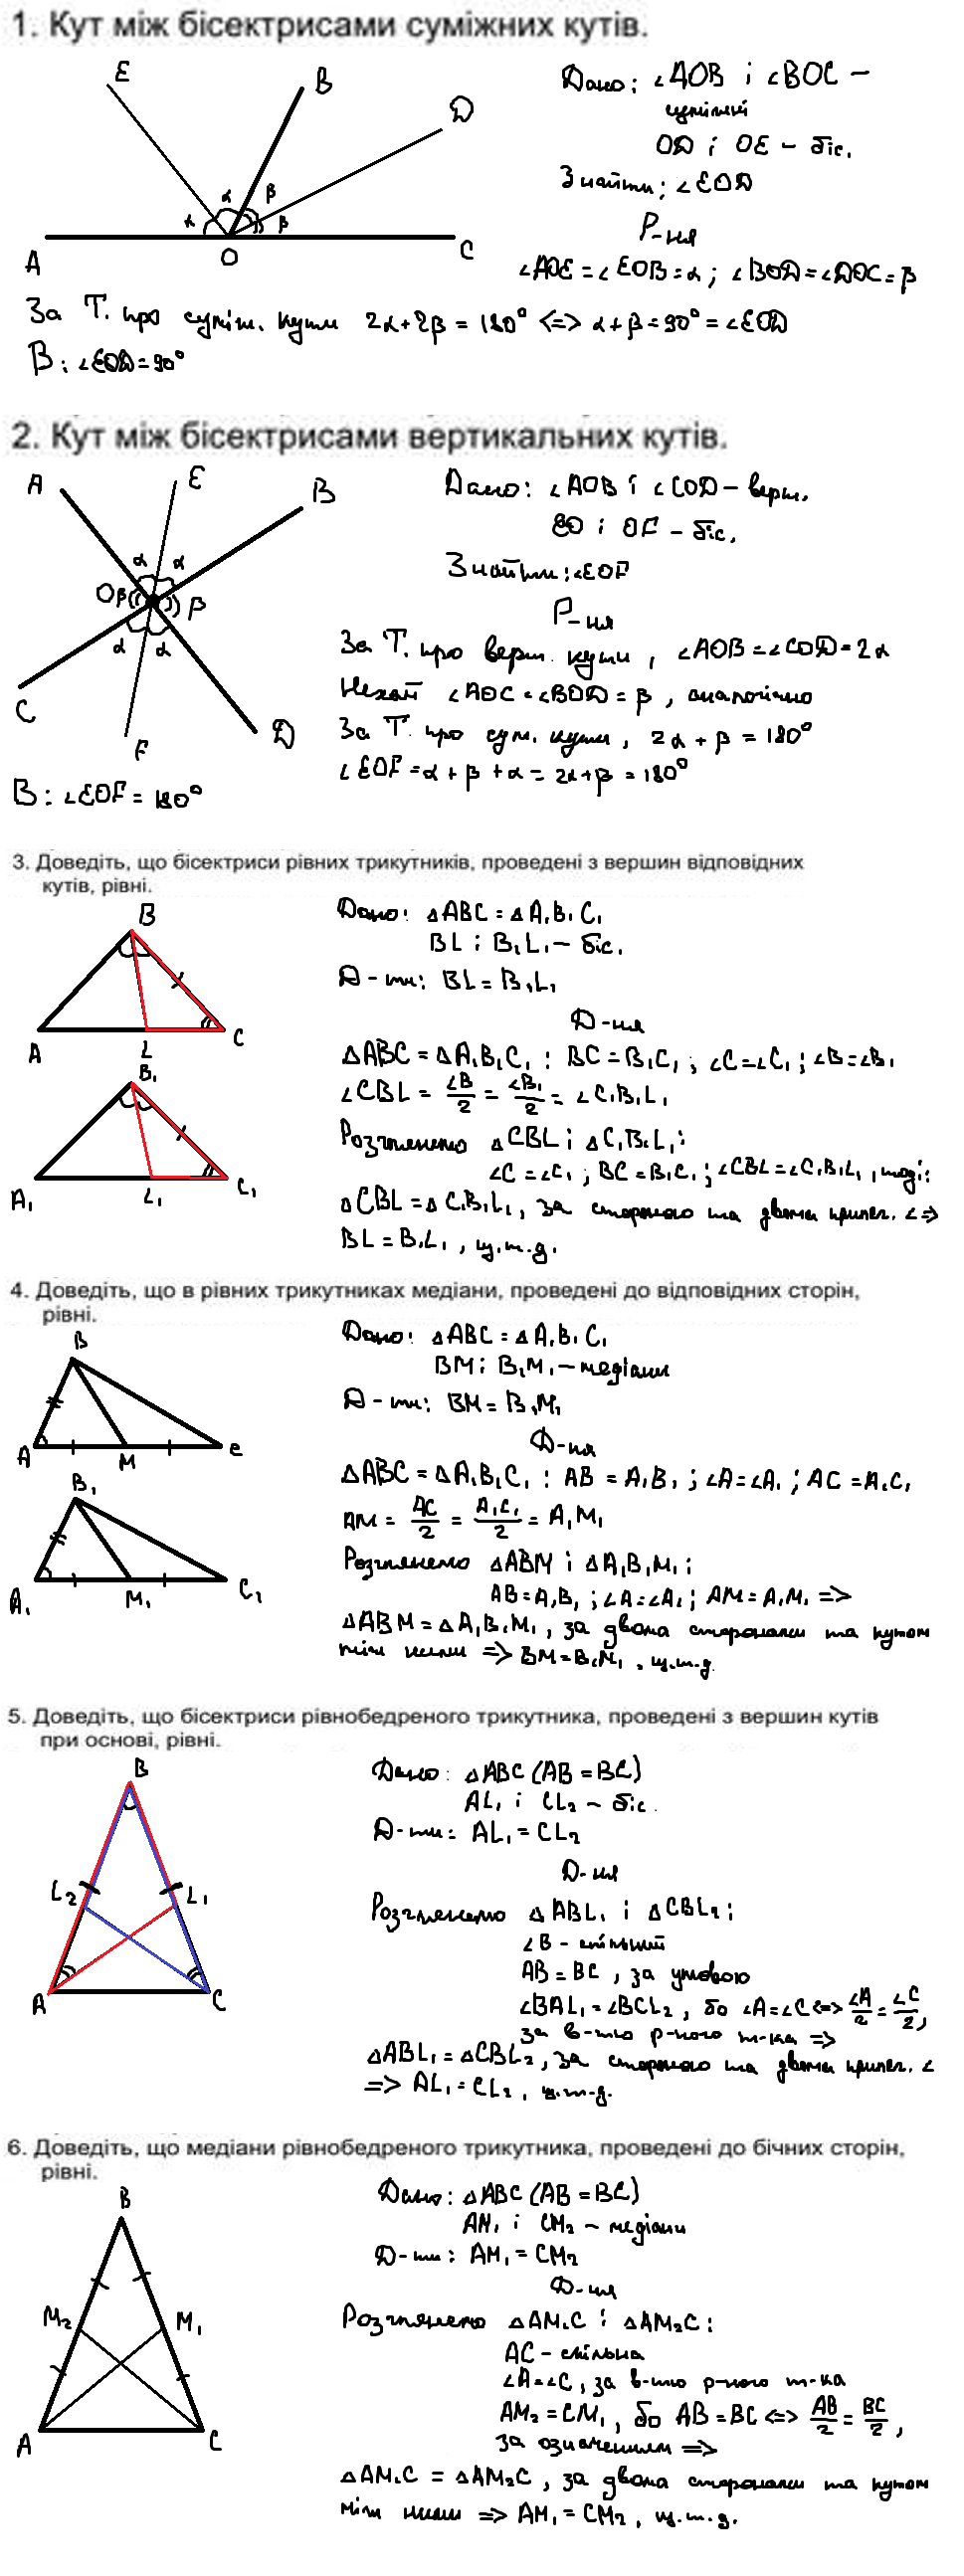 1. Кут між бісектрисами суміжних кутів.
E
B
D
α
β
α
β
A
O
C
Дано: ∠AOB і ∠BOC –
суміжні
OD і OE – біс.
Знайти: ∠EOD
Р-ня
∠AOE = ∠EOB = α ; ∠BOD = ∠DOC = β
За Т. про суміж. кути 2α + 2β = 180° <=> α + β = 90° = ∠EOD
В: ∠EOD = 90°
2. Кут між бісектрисами вертикальних кутів.
A
E
B
α
α
O
β
β
α
α
C
F
D
Дано: ∠AOB і ∠COD – верт.
EO і OF – біс.
Знайти: ∠EOF
Р-ня
За Т. про верт. кути, ∠AOB = ∠COD = 2α
Нехай ∠AOC = ∠BOD = β, аналогічно
За Т. про сум. кути, 2α + β = 180°
∠EOF = α + β + α = 2α + β = 180°
В: ∠EOF = 180°
3. Доведіть, що бісектриси рівних трикутників, проведені з вершин відповідних
кутів, рівні.
B
A
L
C
B₁
A₁
L₁
C₁
Дано: ΔABC = ΔA₁B₁C₁
BL і B₁L₁ – біс.
Д-ти: BL = B₁L₁
Д-ня
ΔABC = ΔA₁B₁C₁ : BC = B₁C₁ ; ∠C = ∠C₁ ; ∠B = ∠B₁
∠CBL = ∠B/2 = ∠B₁/2 = ∠C₁B₁L₁
Розглянемо ΔCBL і ΔC₁B₁L₁:
∠C = ∠C₁ ; BC = B₁C₁ ; ∠CBL = ∠C₁B₁L₁, тоді:
ΔCBL = ΔC₁B₁L₁, за стороною та двома прилег. ∠ =>
BL = B₁L₁, щ.т.д.
4. Доведіть, що в рівних трикутниках медіани, проведені до відповідних сторін,
рівні.
B
A
M
C
B₁
A₁
M₁
C₁
Дано: ΔABC = ΔA₁B₁C₁
BM і B₁M₁ – медіани
Д-ти: BM = B₁M₁
Д-ня
ΔABC = ΔA₁B₁C₁ : AB = A₁B₁ ; ∠A = ∠A₁ ; AC = A₁C₁
AM = AC/2 = A₁C₁/2 = A₁M₁
Розглянемо ΔABM і ΔA₁B₁M₁:
AB = A₁B₁ ; ∠A = ∠A₁ ; AM = A₁M₁ =>
ΔABM = ΔA₁B₁M₁, за двома сторонами та кутом
між ними => BM = B₁M₁, щ.т.д.
5. Доведіть, що бісектриси рівнобедреного трикутника, проведені з вершин кутів
при основі, рівні.
B
L₂
L₁
A
C
Дано: ΔABC (AB = BC)
AL₁ і CL₂ – біс.
Д-ти: AL₁ = CL₂
Д-ня
Розглянемо ΔABL₁ і ΔCBL₂:
∠B – спільний
AB = BC, за умовою
∠BAL₁ = ∠BCL₂, бо ∠A = ∠C <=> ∠A/2 = ∠C/2,
за в-тю р-ного т-ка =>
ΔABL₁ = ΔCBL₂, за стороною та двома прилег. ∠
=> AL₁ = CL₂, щ.т.д.
6. Доведіть, що медіани рівнобедреного трикутника, проведені до бічних сторін,
рівні.
B
M₂
M₁
A
C
Дано: ΔABC (AB = BC)
AM₁ і CM₂ – медіани
Д-ти: AM₁ = CM₂
Д-ня
Розглянемо ΔAM₁C і ΔAM₂C:
AC – спільна
∠A = ∠C, за в-тю р-ного т-ка
AM₂ = CM₁, бо AB = BC <=> AB/2 = BC/2,
за означенням =>
ΔAM₁C = ΔAM₂C, за двома сторонами та кутом
між ними => AM₁ = CM₂, щ.т.д.